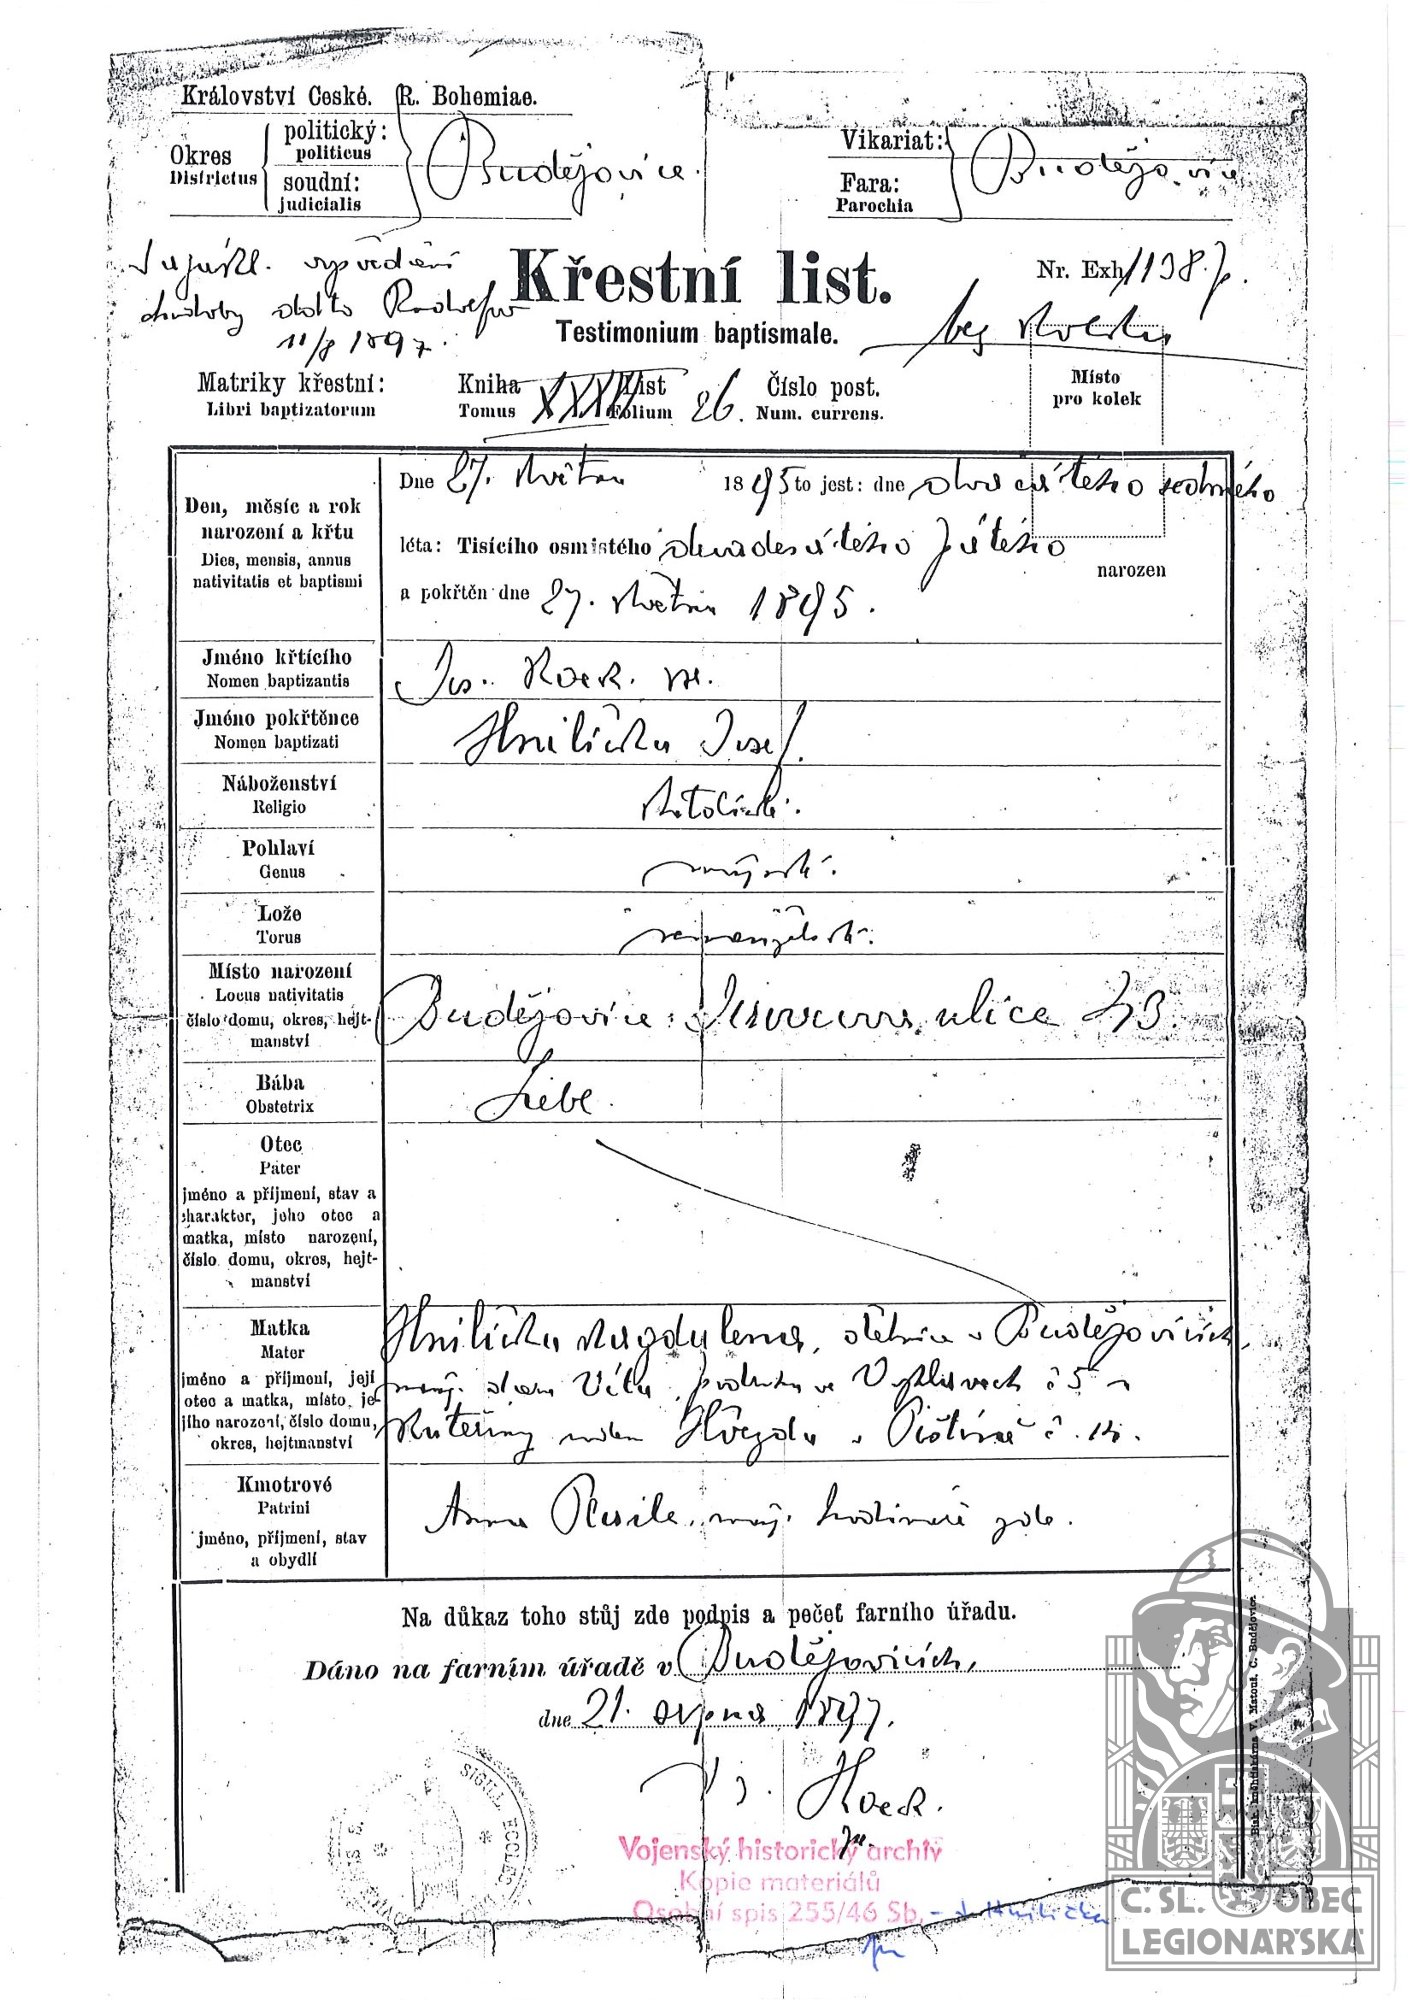 Království České. R. Bohemiae.
Okres
Districtus
politický:
politicus
soudní:
judicialis
Budějovice.
Vikariat:
Fara:
Parochia
Budějovice
vysvědčení
chudoby
11/8 1897.
Křestní list.
Testimonium baptismale.
Nr. Exh. 1138.
bez kolku
Místo
pro kolek
Matriky křestní:
Libri baptizatorum
Kniha
Tomus
List
Folium
26.
Číslo post.
Num. currens.
Den, měsíc a rok
narození a křtu
Dies, mensis, annus
nativitatis et baptismi
Dne 27. května 1895 to jest: dne dvacátého sedmého
léta: Tisícího osmistého devadesátého pátého
narozen
a pokřtěn dne 27. května 1895.
Jméno křtícího
Nomen baptizantis
Jos.
Jméno pokřtěnce
Nomen baptizati
Hnilička Josef.
Náboženství
Religio
katolické.
Pohlaví
Genus
mužské.
Lože
Torus
nemanželské.
Místo narození
Locus nativitatis
číslo domu, okres, hejt-
manství
Budějovice, ulice 43.
Bába
Obstetrix
Otec
Pater
jméno a příjmení, stav a
charakter, jeho otec a
matka, místo narození,
číslo domu, okres, hejt-
manství
Matka
Mater
jméno a příjmení, její
otec a matka, místo je-
jího narození, číslo domu,
okres, hejtmanství
Hnilička Magdalena, dělnice v Budějovicích,
dcera Víta, č 5 a
Kateřiny Hvězda v Pištíně č. 14.
Kmotrové
Patrini
jméno, příjmení, stav
a obydlí
Anna
Na důkaz toho stůj zde podpis a pečeť farního úřadu.
Dáno na farním úřadě v Budějovicích,
dne 21. srpna 1897.
SIGILL ECCLES
Vojenský historický archiv
Kopie materiálů
Osobní spis 255/46 Sb. - J. Hnilička
Bisk. knihtiskárna V. Matouš, Č. Budějovice
Č. SL. OBEC
LEGIONÁŘSKÁ